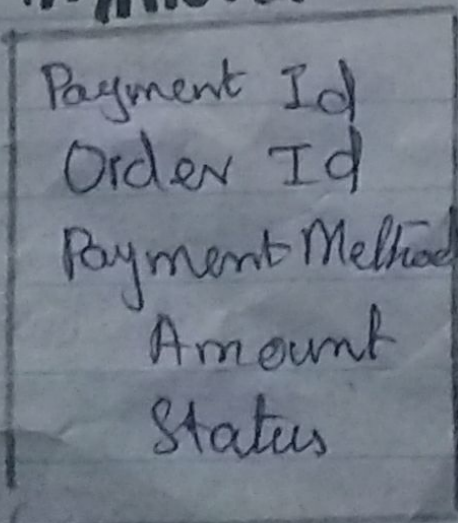 Payment Id
Order Id
Payment Method
Amount
Status